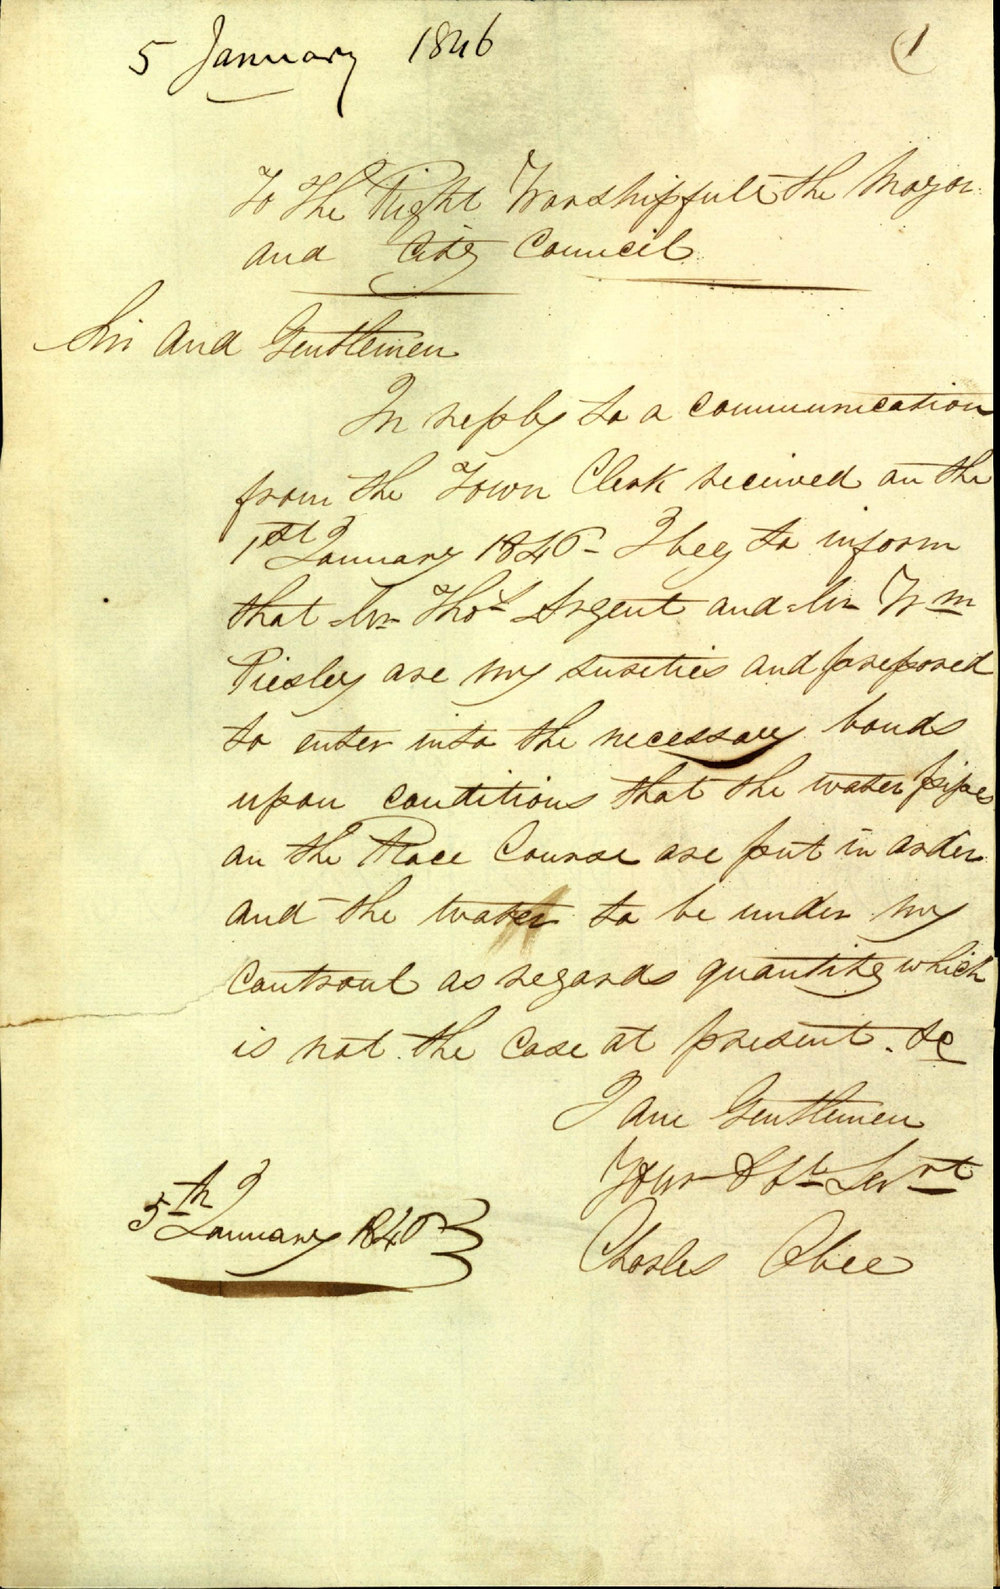 5 January 1846
1
To The Right Worshipfull the Mayor
and City Council
Sir and Gentlemen
In reply to a communication
from the Town Clerk received on the
1st January 1846 - I beg to inform
that Mr Thos Argent and Mr Wm
Piesley are my sureties and prepared
to enter into the necessary bonds
upon conditions that the water pipes
on the Race Course are put in order
and the water to be under my
controul as regards quantity which
is not the case at present. &c
I am Gentlemen
Your Obt Servt
Charles Abee
5th January 1846